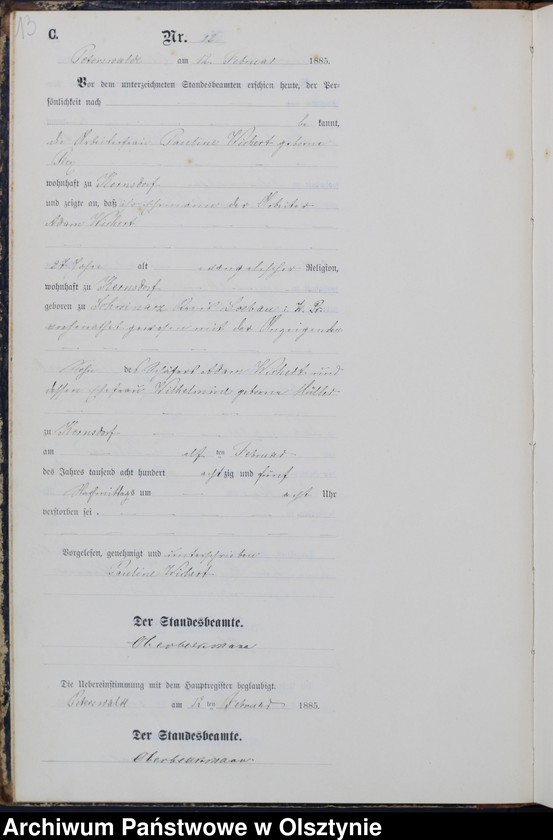 13
C.
Nr. 12
Peterswalde am 12 Februar 1885.
Vor dem unterzeichneten Standesbeamten erschien heute, der Per-
sönlichkeit nach
be kannt,
die Arbeiterfrau Pauline Wichert geborne
wohnhaft zu Kernsdorf
und zeigte an, daß ihr Ehemann der Arbeiter
Adam Wichert
27 Jahre alt evangelischer Religion,
wohnhaft zu Kernsdorf
geboren zu Kreis Loebau i. W. Pr.
verheirathet gewesen mit der Anzeigenden
Sohn des Adam Wichert und
dessen Ehefrau Wilhelmine geborne Müller
zu Kernsdorf
am elf ten Februar
des Jahres tausend acht hundert achtzig und fünf
Nachmittags um acht Uhr
verstorben sei.
Vorgelesen, genehmigt und unterschrieben
Pauline Wichert
Der Standesbeamte.
Die Uebereinstimmung mit dem Hauptregister beglaubigt.
Peterswalde am 12 ten Februar 1885.
Der Standesbeamte.
Archiwum Państwowe w Olsztynie